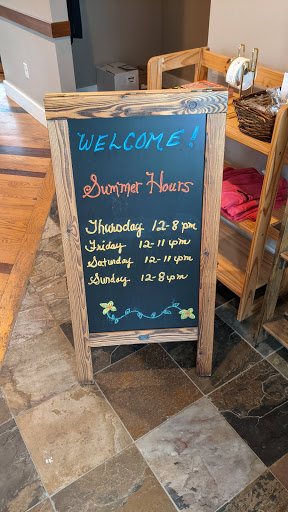 WELCOME!
Summer Hours
Thursday 12-8 pm
Friday 12-11 pm
Saturday 12-11 pm
Sunday 12-8 pm